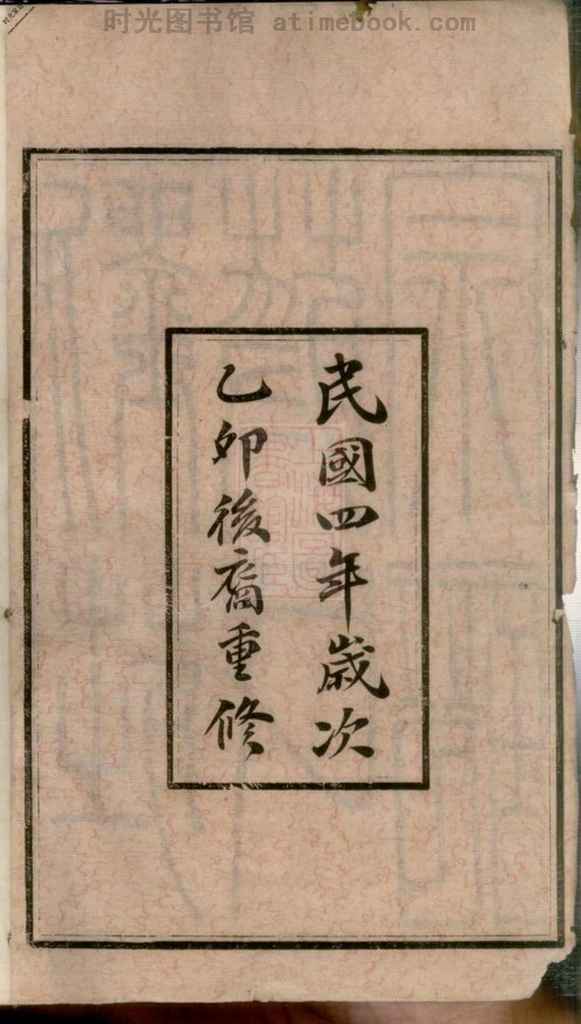 时光图书馆 atimebook.com
民國四年歲次
乙卯後裔重修